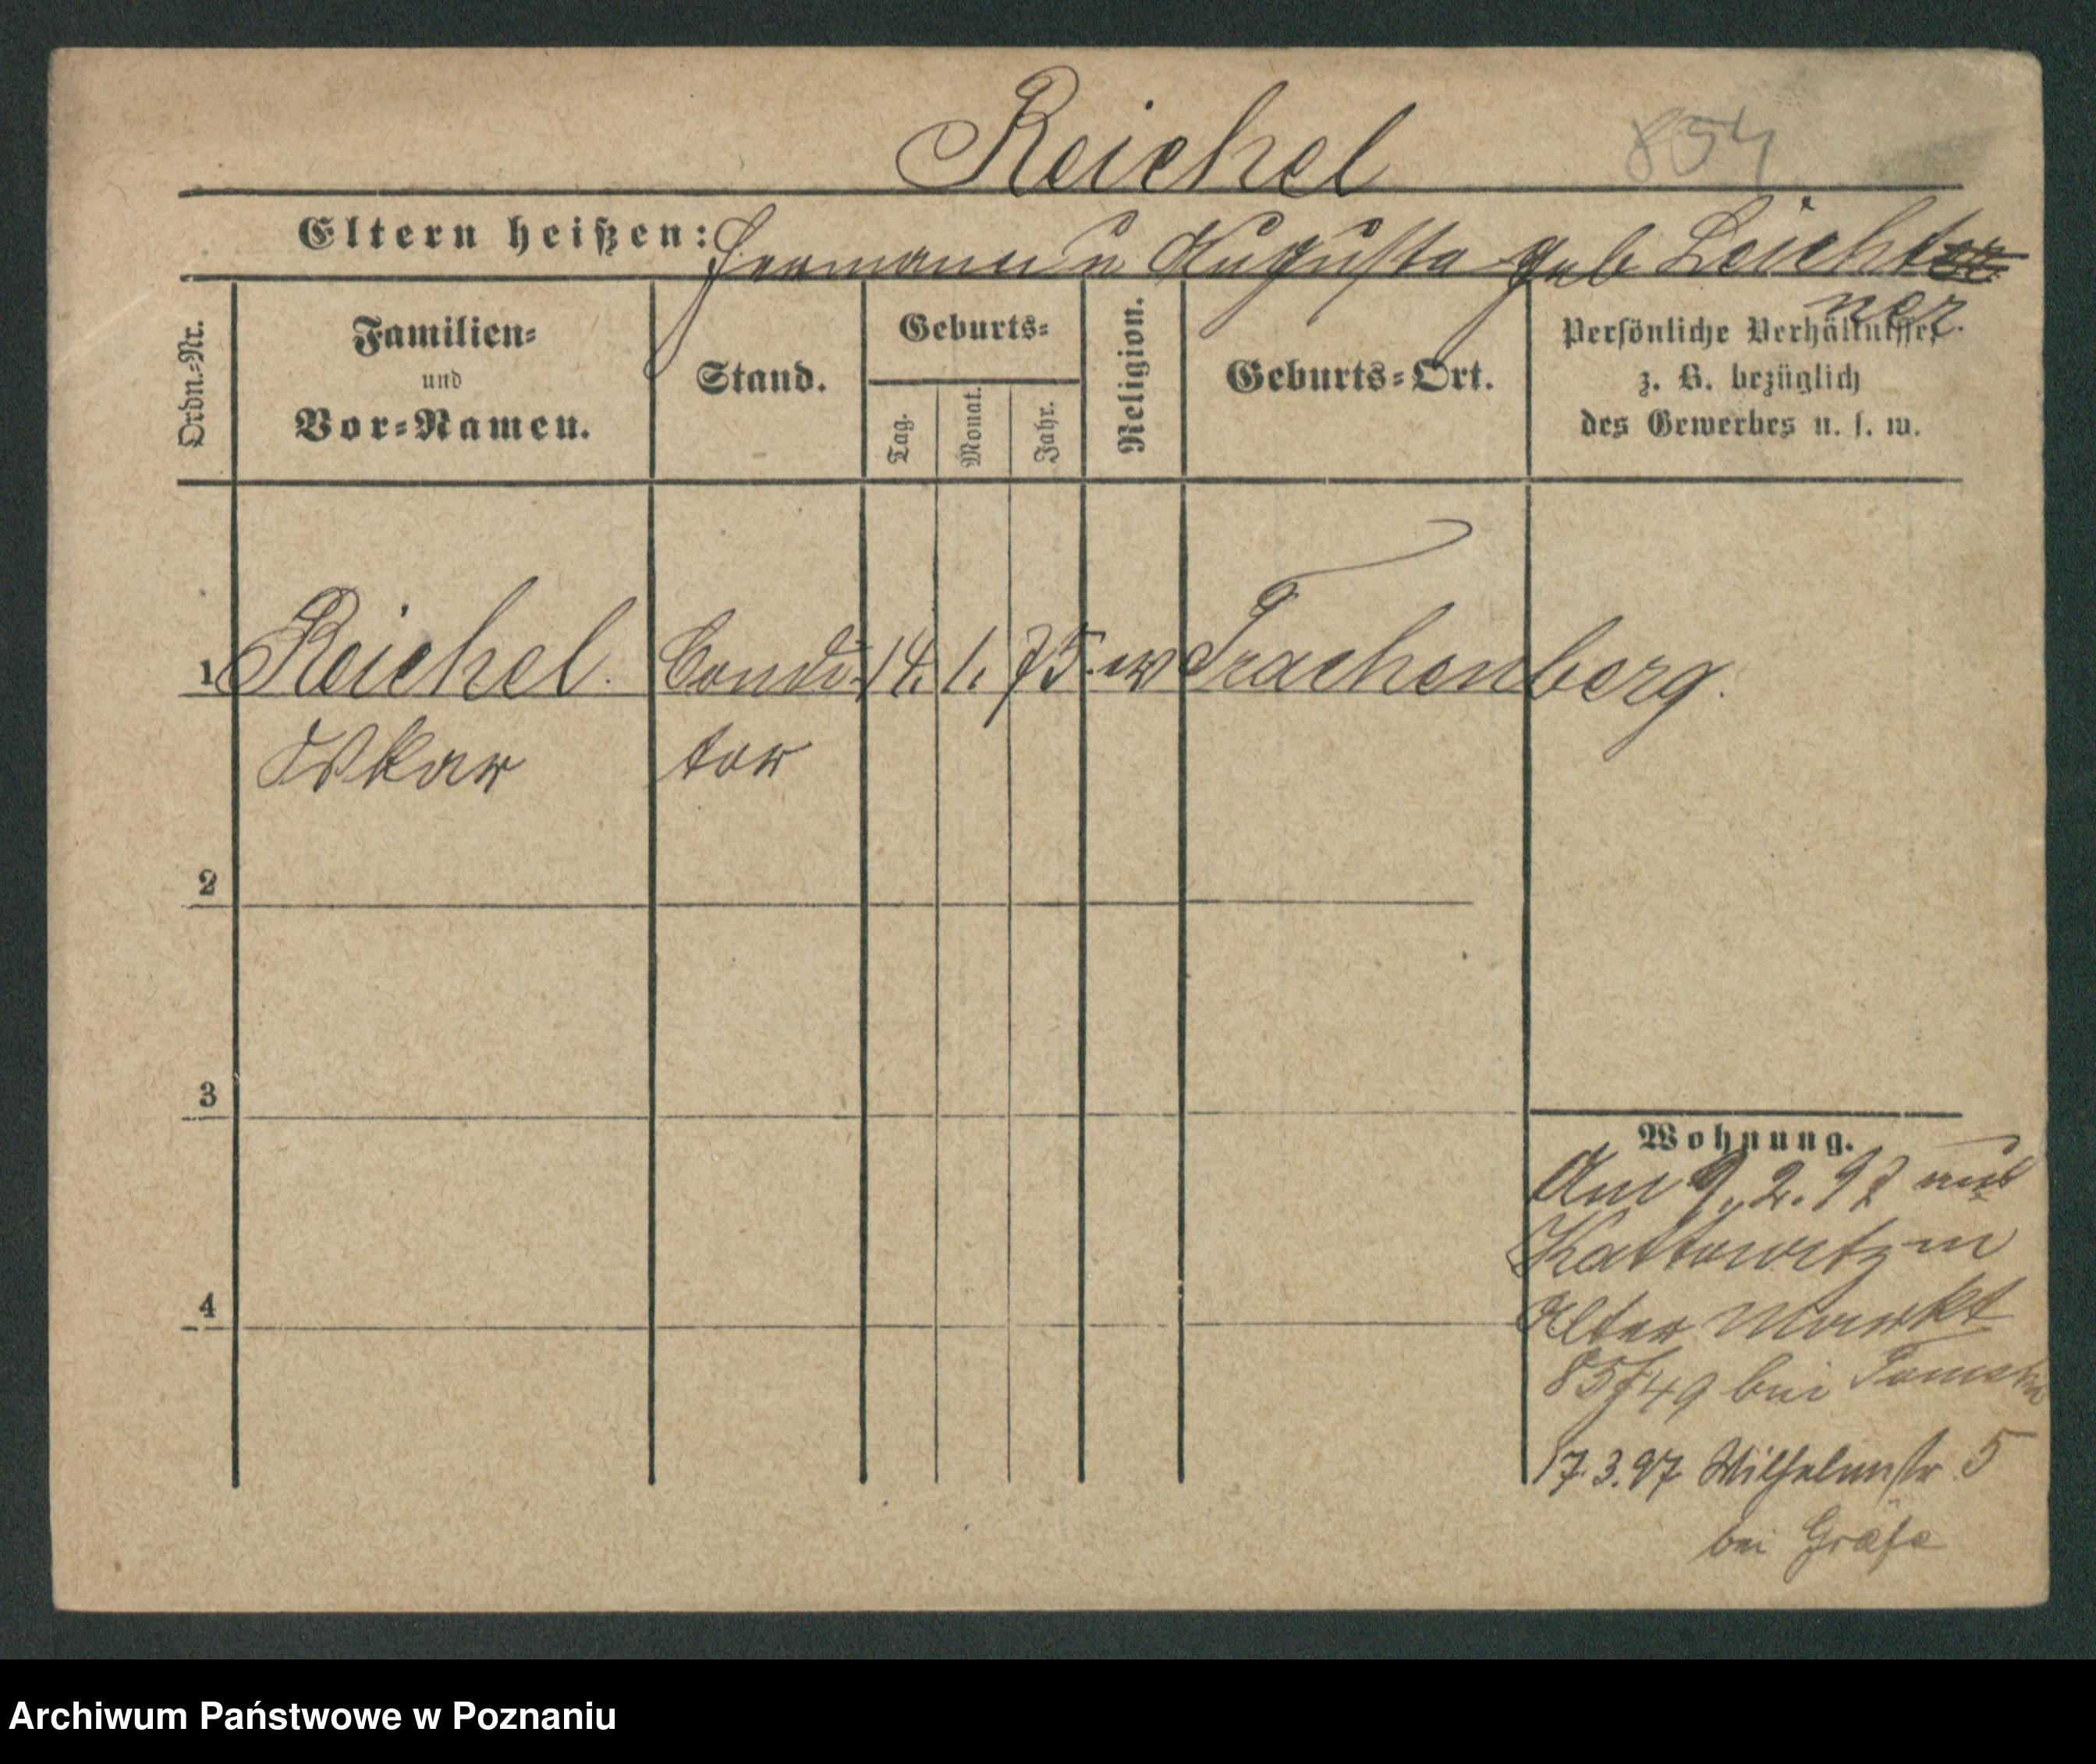 Reichel
854
Eltern heißen: Hermann u Augusta geb Leichter
ner.
Ordn.-Nr.
Familien-
und
Vor-Namen.
Stand.
Geburts-
Tag.
Monat.
Jahr.
Religion.
Geburts-Ort.
Persönliche Verhältnisse,
z. B. bezüglich
des Gewerbes u. s. w.
1 Reichel. Condi- 14. 1. 75. ev Trachenberg.
Oskar tor
2
3
4
Wohnung.
Am 9. 2. 97 aus
Kattowitz in
Alter Markt
85/49 bei
17.3.97 Wilhelmstr. 5
bei Gräfe
Archiwum Państwowe w Poznaniu